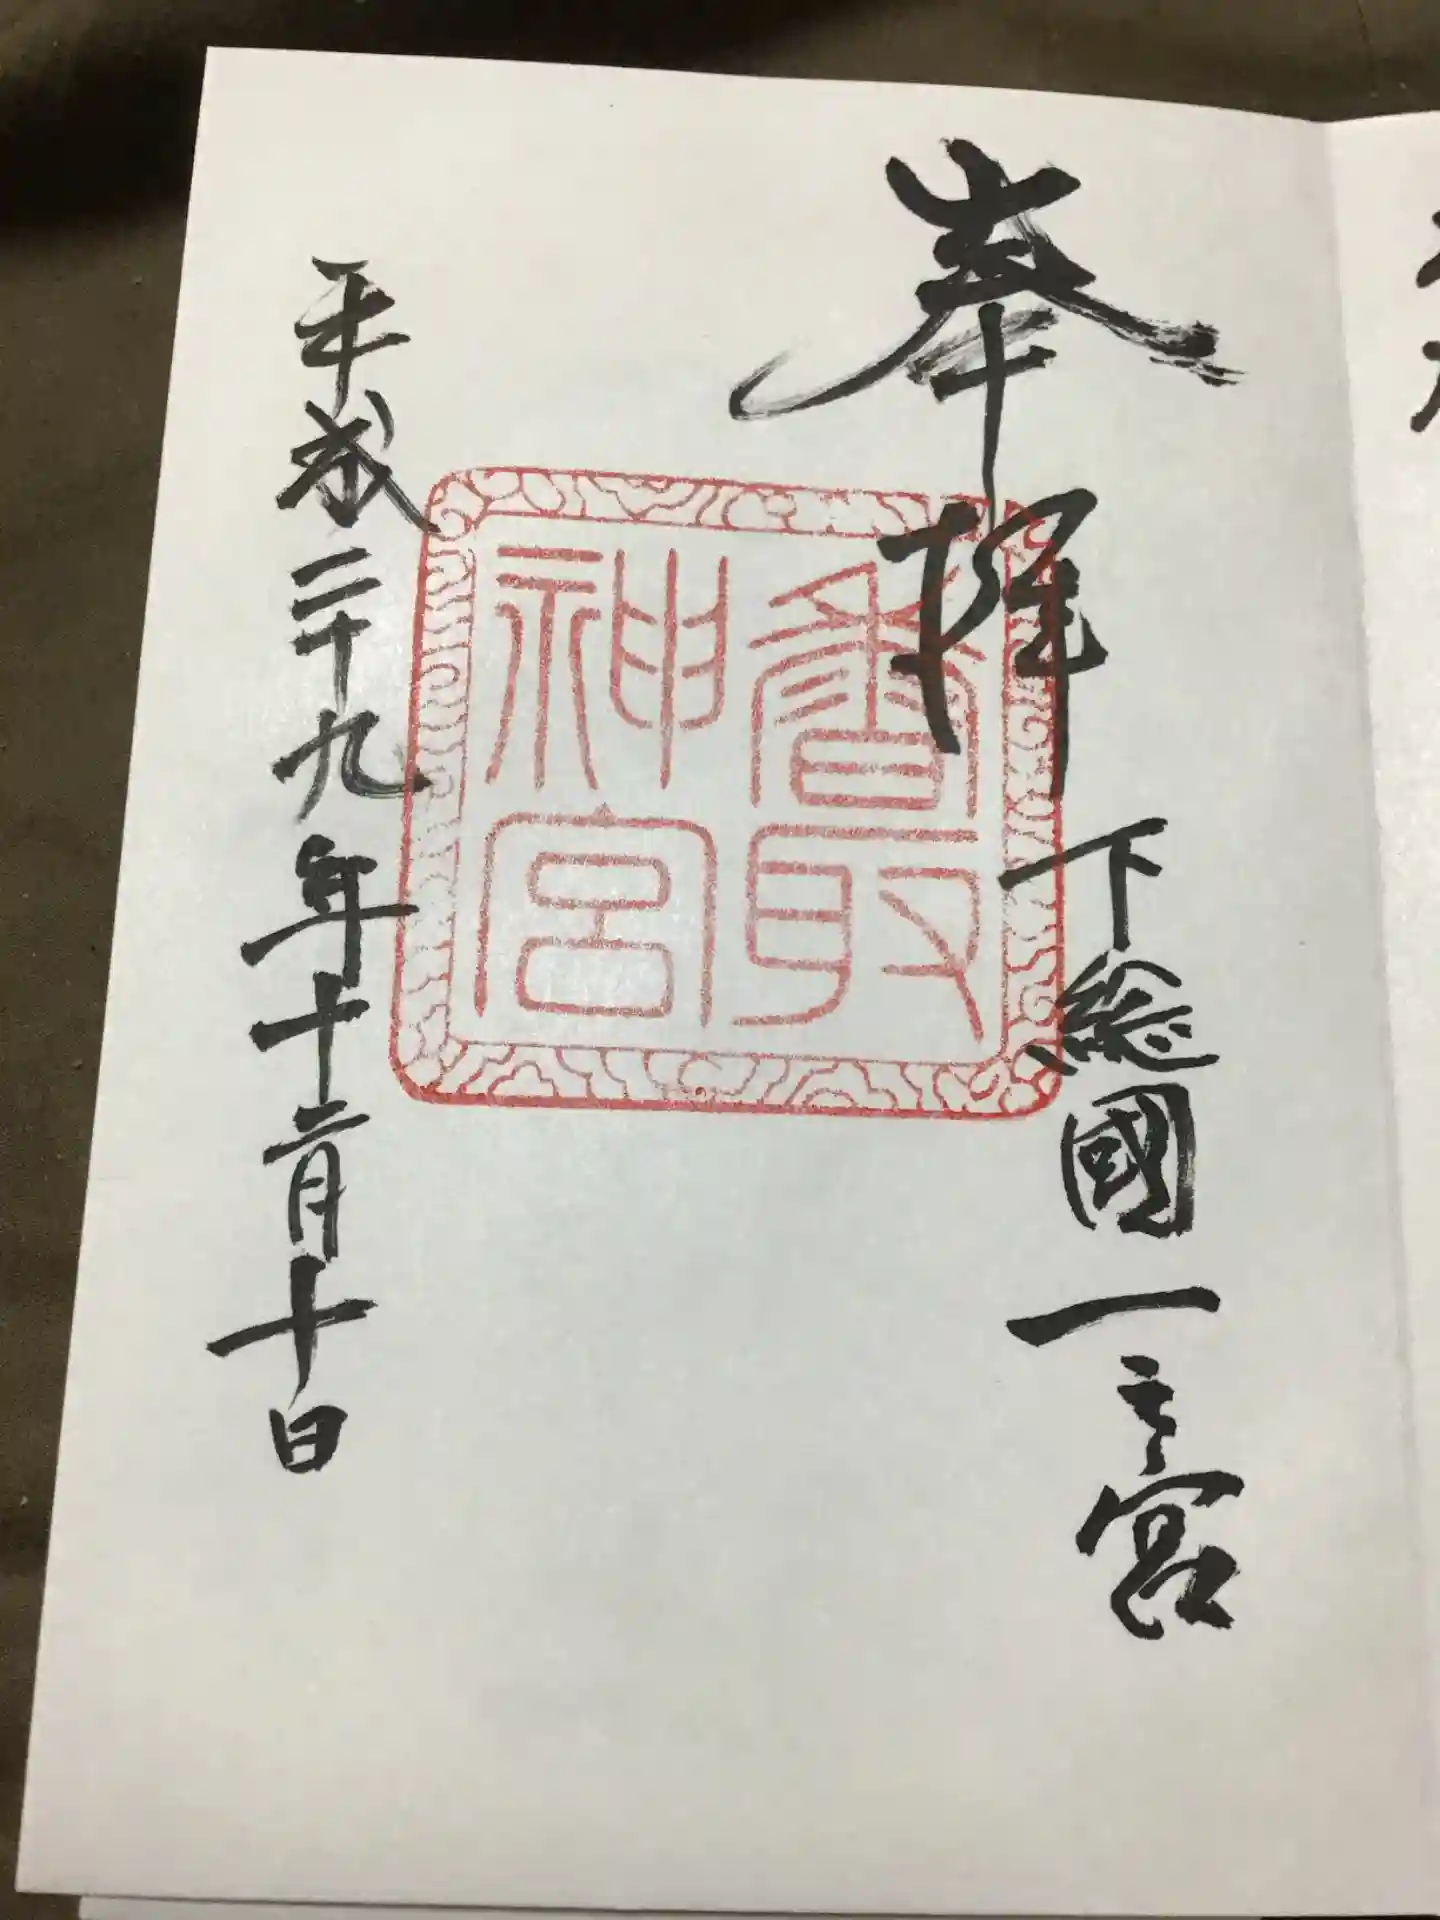 奉拝
下総國一之宮
香取
神宮
平成二十九年十二月十日